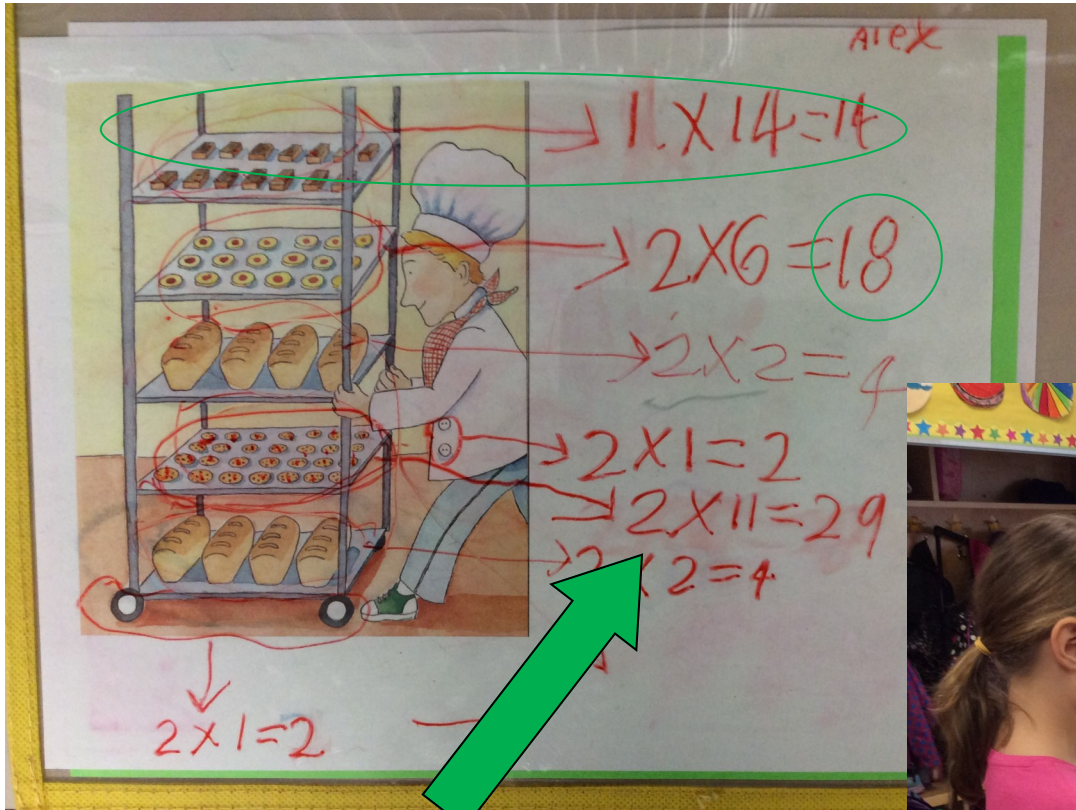 Alex
1 × 14 = 14
2 × 6 = 18
2 × 2 = 4
2 × 1 = 2
2 × 11 = 29
2 × 2 = 4
2 × 1 = 2